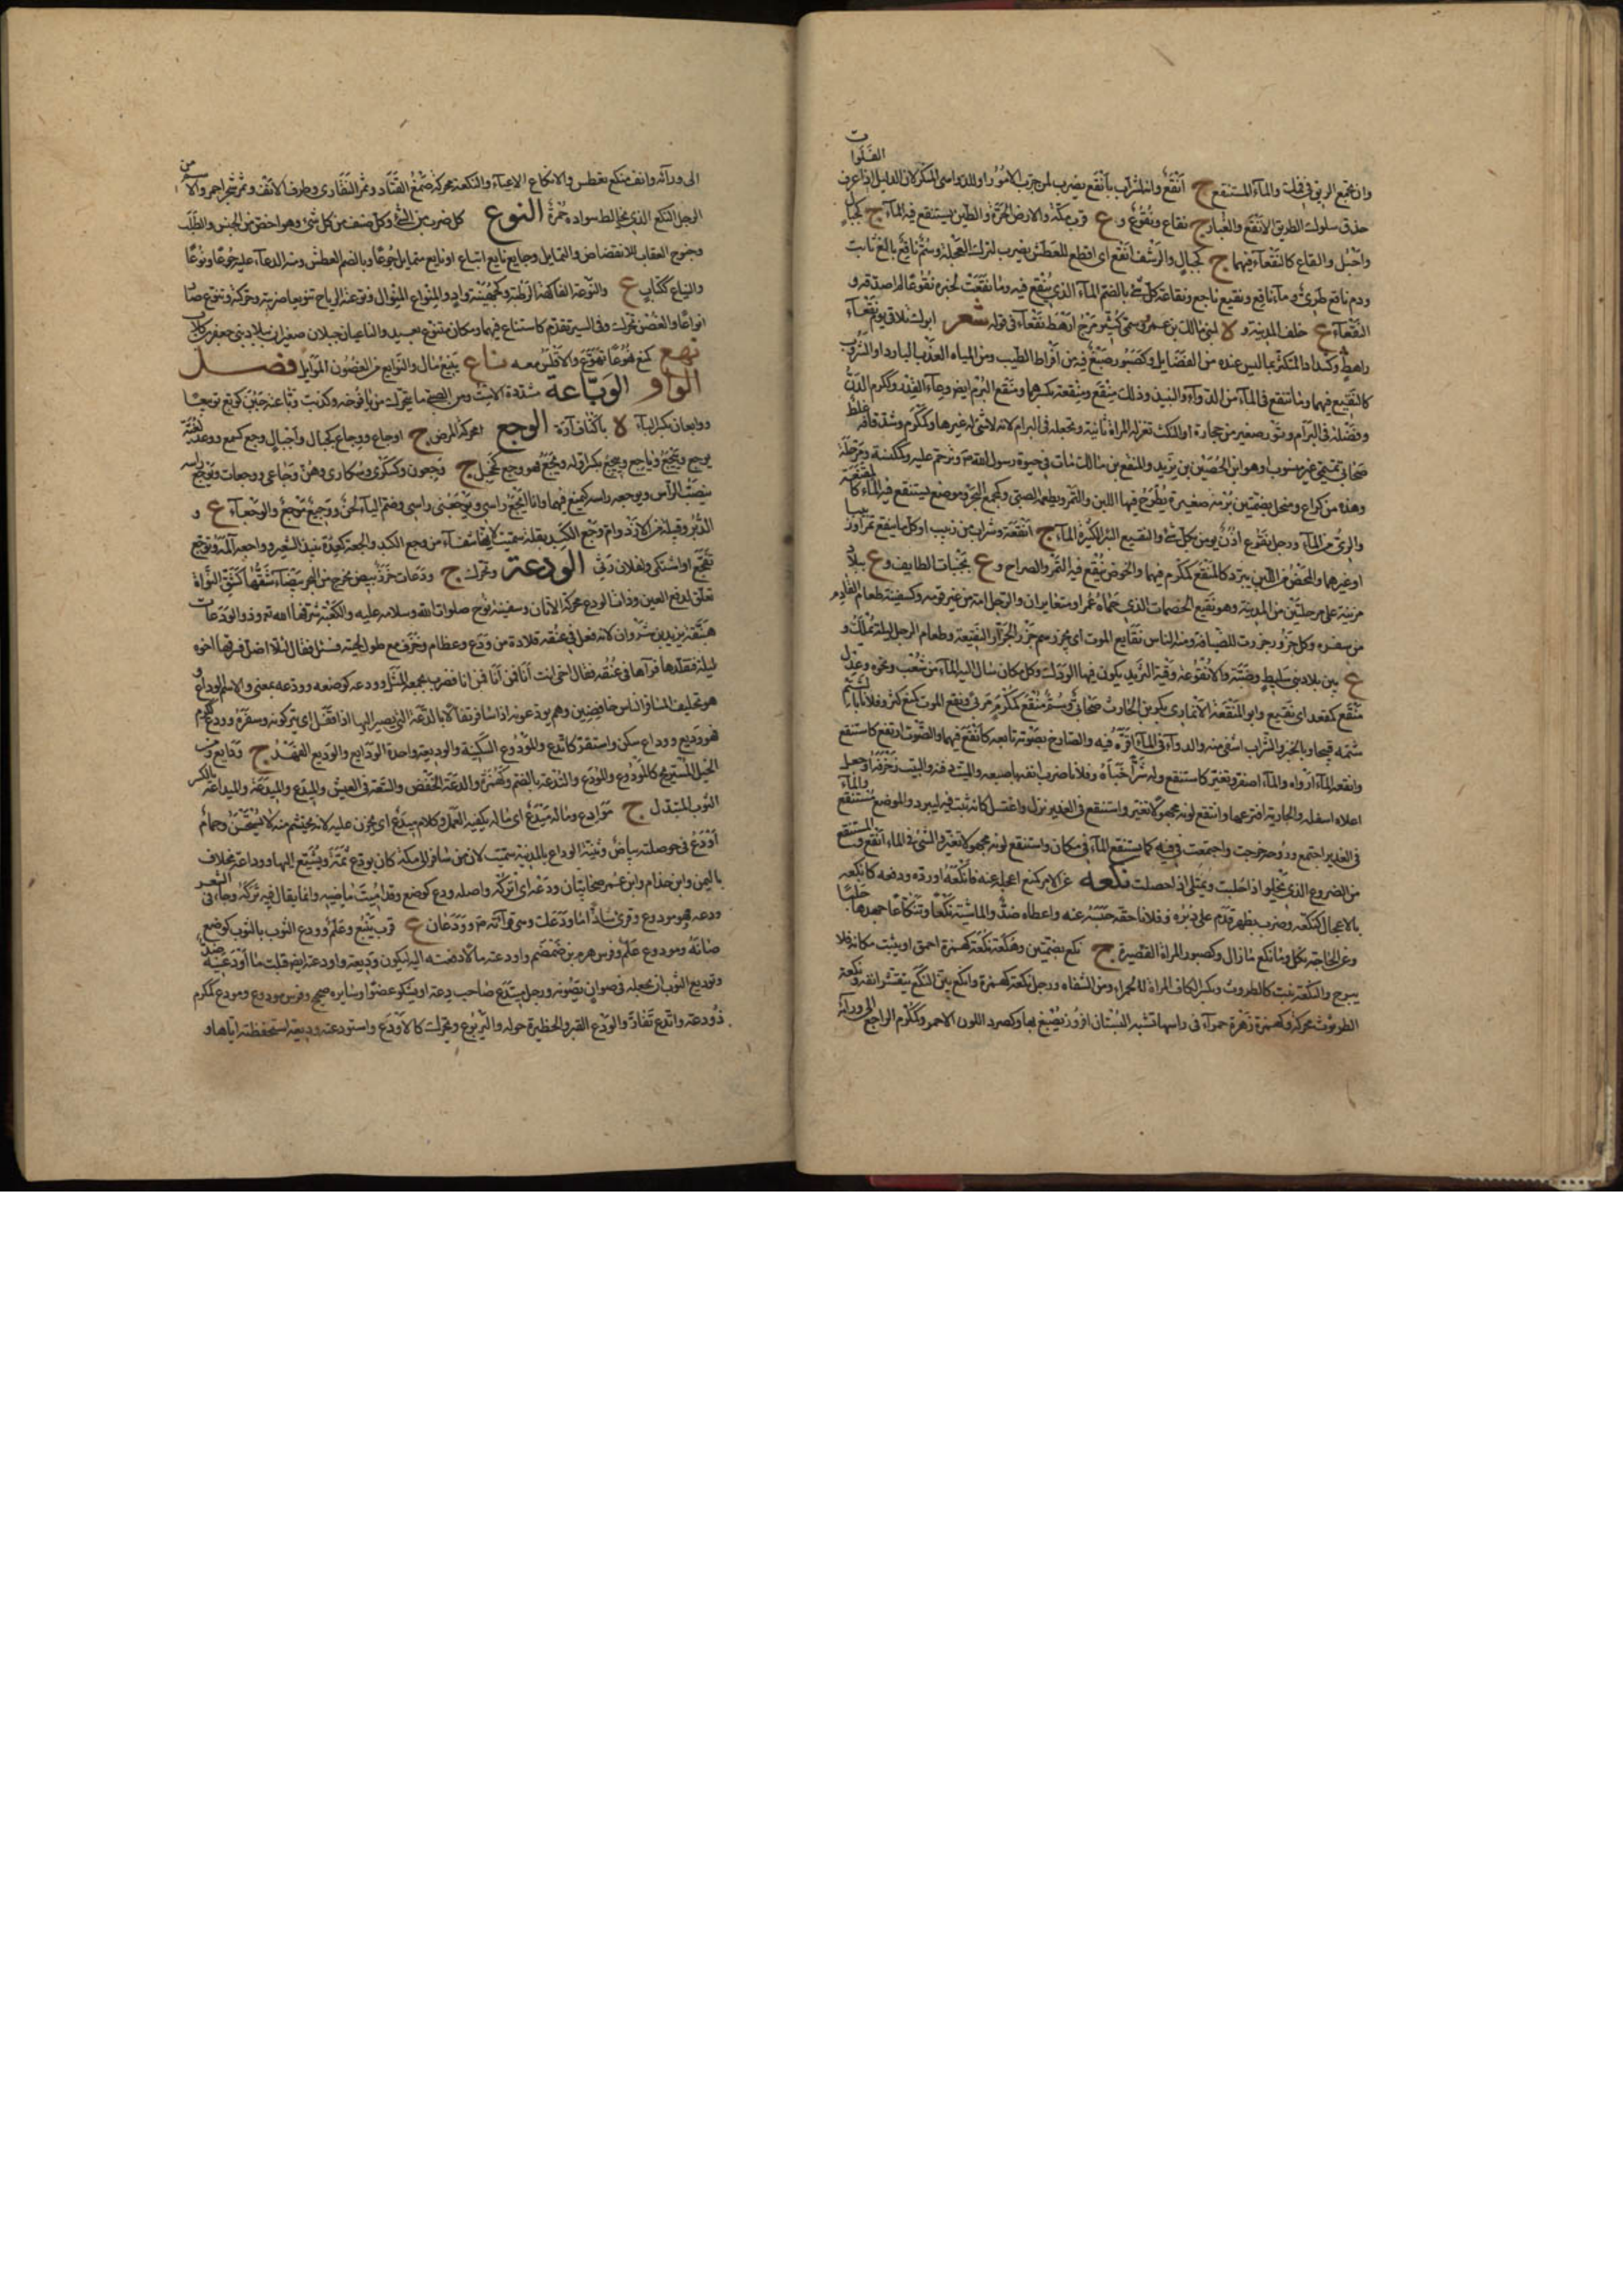 الفلوات
وان يجتمع الريق في فمك والماء المستنقع ج أنقع وانه لشراب بأنقع يضرب لمن جرب الامور او للداهى المنكر لان الدليل اذا عرف
حذق سلوك الطريق الى الانقع والغبار ج نقاع ونقوع و ع قرب مكة والارض الحرة الطين يستنقع فيها الماء ج كجبال
واجبل والقاع كالنقعاء فيهما ج كجبال والرشف انقع اى اقطع للعطش يضرب لترك العجلة وسم ناقع بالغ ثابت
ودم ناقع طرى وماء ناقع ونقيع ناجع ونقاعة كل شئ بالضم الماء الذى ينقع فيه وما نقعت بخبره نقوعا لم اصدقه و
النقعاء ع خلف المدينة و لا لبنى مالك بن عمرو وسمى كثير مرج راهط نقعاء فى قوله شعر ابوك تلاقى يوم نقعاء
راهط وكشداد المتكثر بما ليس عنده من الفضايل وكصبور صبغ فيه من افواه الطيب ومن المياه العذب البارد او الشروب
كالنقيع فيهما وما ينقع فى الماء من الدواء والنبيذ وذلك منقع ومنقعة بكسرهما ومنقع البرم ايضا وعاء القدر وكمكرم الدن
وفضلة فى البرام وتور صغير من حجارة او النكث تغزله المراة ثانية وتجعله فى البرام لانه لا شئ لها غيرها وكمكرم وشد قافه غلط
صحابى تميمى غير منسوب او هو ابن الحصين بن يزيد والمنقع بن مالك مات فى حيوة رسول الله وترحم عليه وكمكنسة ومرحلة
وهذه من كراع ومنخل بضمتين برمة صغيرة يطرح فيها اللبن والتمر ويطعمه الصبى وكمجمع البحر وموضع يستنقع فيه الماء كالمنقعة
والرى من الماء ورجل نقوع اذن يومن بكل شئ والنقيع البئر الكثيرة الماء ج انقعة وشراب من زبيب او كل ما ينقع تمرا او زبيبا
او غيرهما والمحض من اللبن يبرد كالمنقع كمكرم فيهما والحوض ينقع فيه التمر والصراخ و ع بجنبات الطايف و ع ببلاد
مزينة على مرحلتين من المدينة وهو نقيع الخضمات الذى حماه عمر او متغايران والرجل امه من غير قومه وكسفينة طعام القادم
من سفره وكل جزور جزرت للضيافة ومنه الناس نقايع الموت اى يجزرهم جزر الجزار النقيعة وطعام الرجل ليلة يملك و
ع بين بلاد بنى سليط وضبة والانقوعة وقبة الثريد يكون فيها الودك وكل مكان سال اليه الماء من مثعب ونحوه وعدل
منقع كمقعد اى نقيع وابو المنقعة الانمارى بكر بن الحارث صحابى وسم منقع كمكرم مربى ونقع الموت كمنع كثر وفلانا بالشتم
شتمه قبيحا وبالخبر والشراب اشتفى منه والدواء فى الماء اقره فيه والصارخ بصوته تابعه كانقع فيهما والصوت ارتفع كاستنقع
وانقعه الماء ارواه والماء اصفر وتغير كاستنقع وله شرا خباه وفلانا ضرب انفه باصبعه والميت دفنه والبيت زخرفه او جعل
اعلاه اسفله والجارية افترعها وانتقع لونه مجهولا تغير واستنقع فى الغدير نزل واغتسل كانه ثبت فيه ليبرد والموضع مستنقع والماء
فى الغدير اجتمع وروحه خرجت واجتمعت فى فيه كما يستنقع الماء فى مكان واستنقع لونه مجهولا تغير والشئ فى الماء انقع والمستنقع
من الضروع الذى يخلو اذا حلبت ويمتلى اذا حفلت نكعه عن الامر كمنع اعجله عنه كانكعه او رده ودفعه كانكعه
بالاعجال كنكعه وضرب بظهر قدمه على دبره وفلانا حقه حبسه عنه واعطاه ضد والماشية نكعا وتنكاعا جهدها حلبا
وعن الحاجة نكل وما نكع مازال وكصبور المراة القصيرة ج نكع بضمتين وهكعة نكعة كهمزة احمق او يثبت مكانه فلا
يبرح والنكعة نبت كالطرثوث وبكسر الكاف المراة الحمراء ومن الشفاه ورجل نكعة كهمزة وانكع بين النكع يتقشر انفه ونكعة
الطرثوث محركة وكهمزة زهرة حمراء فى راسها تشبه البستان افروز يصبغ بها وكصرد اللون الاحمر وكمكرم الراجع الى ورائه
الى ورائه وانف منكع افطس والانكاع الاعياء والنكعة محركة صمغ القتاد وثمر النقاوى وطرف الانف وثمر شجر احمر والاسم من
الرجل النكع الذى يخالط سواده حمرة النوع كل ضرب من الشئ وكل صنف من كل شئ وهو اخص من الجنس والطلب
وجنوح العقاب للانقضاض والتمايل وجايع نايع اتباع او نايع متمايل جوعا وبالضم العطش ومنه الدعاء عليه جوعا ونوعا
والنياع ككتاب ع والنوعة الفاكهة الرطبة وكجهينة واد والمنواع المنوال ونوعته الرياح تنويعا ضربته وحركته وتنوع صار
انواعا والغصن تحرك وفى السير تقدم كاستناع فيهما ومكان متنوع بعيد والنايعان جبلان صغيران ببلاد بنى جعفر بن كلاب
نهع كمنع نهوعا تهوع ولا قلس معه ناع ينيع مال والنوايع من الغصون الموايل فصل
الواو الوباعة مشددة الاست ومن الصبى ما يتحرك من يافوخه وكذبت وباعته حبق كوبع توبيعا
ووبعان بكسر الباء لا باكناف آرة الوجع محركة المرض ج اوجاع ووجاع كجبال واجبال وجع كسمع ووعد لغية
يوجع وييجع وياجع وييجع بكسر اوله ويجع فهو وجع كخجل ج وجعون وكسكرى وسكارى وهن وجاعى ووجعات ويوجع راسه
بنصب الرأس ويوجعه راسه كيمنع فيهما وانا ايجع راسى ويوجعنى راسى وضم الياء لحن ووجيع موجع والوجعاء ع و
الدبر وقبيلة من الازد وام وجع الكبد بقلة سميت لانها شفاء من وجع الكبد والجعة كعدة نبيذ الشعير واوجعه المه وتوجع
تفجع او اشتكى ولفلان رثى الودعة وتحرك ج ودعات خرز بيض تخرج من البحر بيضاء شقها كشق النواة
تعلق لدفع العين وذات الودع محركة الاوثان وسفينة نوح صلوات الله وسلامه عليه والكعبة شرفها الله تعالى وذو الودعات
هبنقة يزيد بن ثروان لانه فعل فى عنقه قلادة من ودع وعظام وخزف مع طول لحيته فسئل فقال لئلا اضل فسرقها اخوه
ليلة فتقلدها فرآها فى عنقه فقال اخى انت انا فمن انا فضرب بحمقه المثل وودعه كوضعه وودعه بمعنى والاسم الوداع و
هو تخليف المسافر الناس خافضين وهم يودعونه اذا سافر تفاؤلا بالدعة التى يصير اليها اذا قفل اى يتركونه وسفره وودع ككرم
فهو وديع ووادع سكن واستقر كاتدع والمودوع السكينة والوديعة واحدة الودايع والوديع العهد ج ودايع ومن
الخيل المستريح كالمودوع والمودع والتدعة بالضم وكهمزة والدعة الخفض والسعة فى العيش والميدع والميدعة والميداعة بالكسر
الثوب المبتذل ج موادع وماله ميدع اى ماله يكفيه العمل وكلام ميدع اى يحزن عليه لانه يحتشم منه لا يستحسن وحمام
اودع فى حوصلته بياض وثنية الوداع بالمدينة سميت لان من سافر الى مكة كان يودع ثمة ويشيع اليها ووداعة مخلاف
باليمن وابن جذام وابن عمر صحابيان ودعه اى اتركه واصله ودع كوضع وقد اميت ماضيه وانما يقال فيه تركه وجاء فى الشعر
ودعه وهو مودوع وقرئ شاذا ما ودعك وهى قرآءته م وودعان ع قرب ينبع وعلم وودع الثوب بالثوب كوضع
صانه ومودوع علم وفرس هرم بن ضمضم واودعته مالا دفعته اليه ليكون وديعة واودعته ايضا قبلت ما اودعنيه ضد
وتوديع الثوب ان تجعله فى صوان يصونه ورجل متدع صاحب دعة او يشكو عضوا وسايره صحيح وفرس مودوع ومودع كمكرم
ذو دعة واتدع تفارا والودع القبر والحظيرة حوله واليربوع وتحرك كالاودع واستودعته وديعة استحفظته اياها و